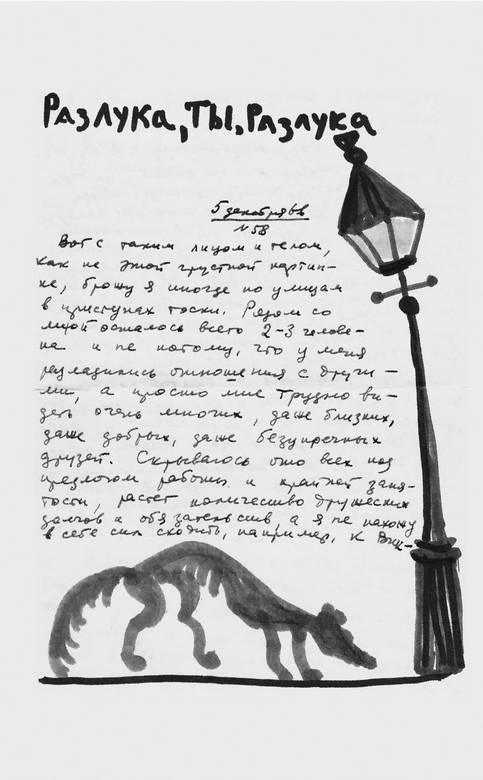 Разлука, ты, Разлука
5 декабря 66
N 58
Вот с таким лицом и телом,
как на этой грустной картин-
ке, брожу я иногда по улицам
в приступах тоски. Рядом со
мной осталось всего 2-3 челове-
ка и не потому, что у меня
разладились отношения с други-
ми, а просто мне трудно ви-
деть очень многих, даже близких,
даже добрых, даже безупречных
друзей. Скрываюсь ото всех под
предлогом работы и крайней заня-
тости, растет количество дружеских
долгов и обязательств, а я не нахожу
в себе сил сходить, например, к Вик-